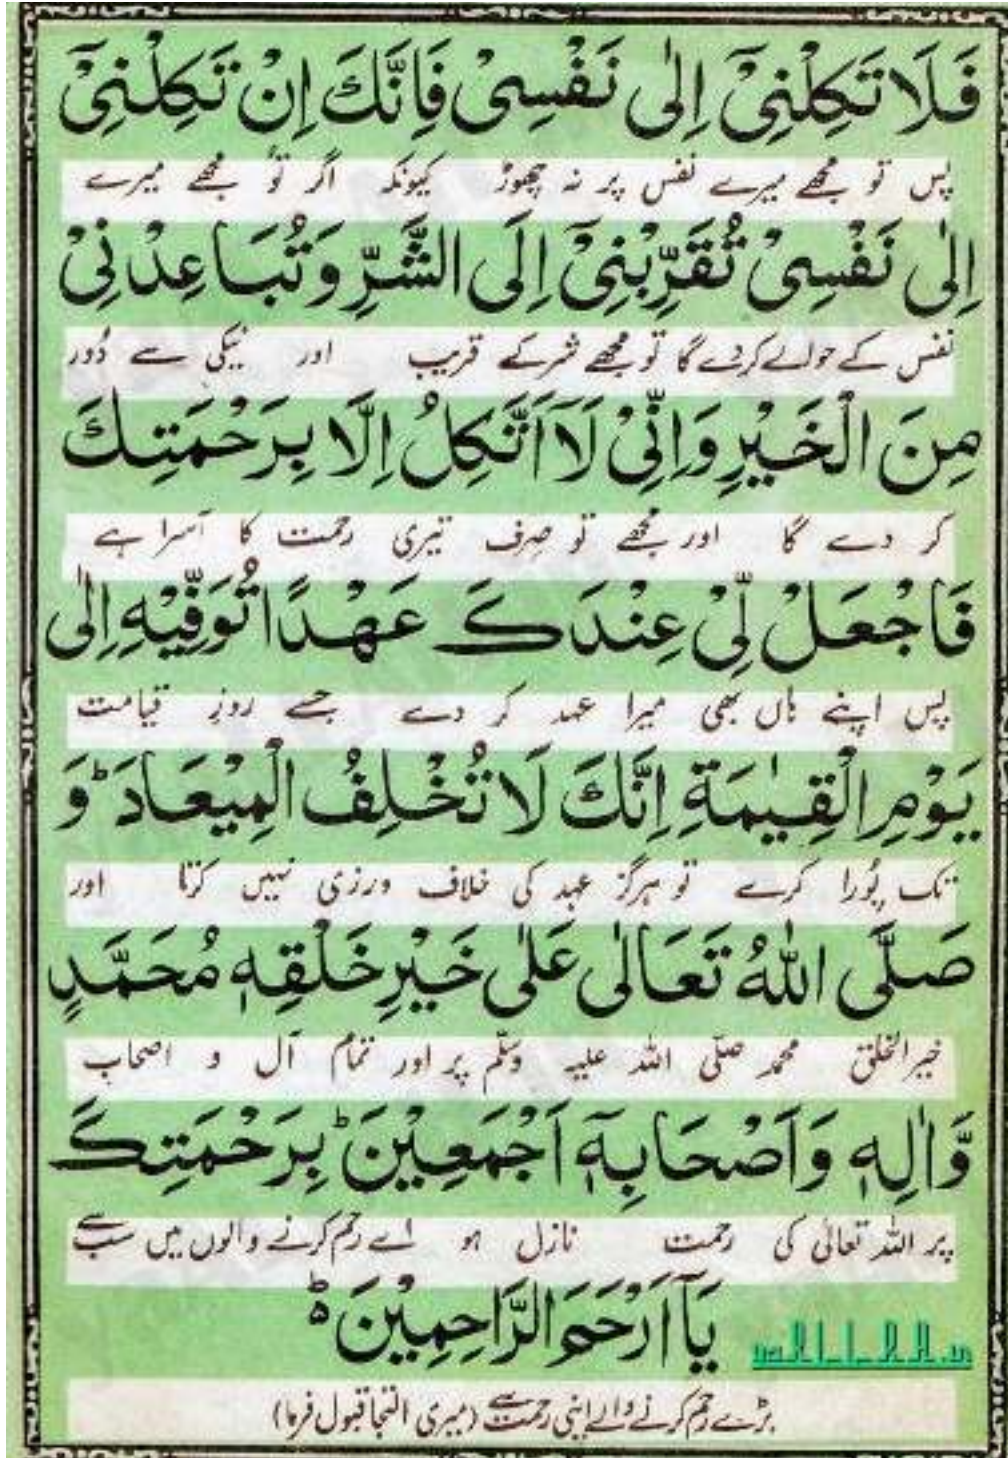 فَلَا تَكِلْنِیْۤ اِلٰی نَفْسِیْ فَاِنَّكَ اِنْ تَكِلْنِیْۤ
پس تو مجھے میرے نفس پر نہ چھوڑ کیونکہ اگر تُو مجھے میرے
اِلٰی نَفْسِیْ تُقَرِّبْنِیْۤ اِلَی الشَّرِّ وَتُبَاعِدْنِیْ
نفس کے حوالے کردے گا تو مجھے شر کے قریب اور نیکی سے دُور
مِنَ الْخَیْرِ وَاِنِّیْ لَاۤ اَتَّكِلُ اِلَّا بِرَحْمَتِكَ
کر دے گا اور مجھے تو صرف تیری رحمت کا آسرا ہے
فَاجْعَلْ لِّیْ عِنْدَكَ عَهْدًا تُوَفِّیْهِ اِلٰی
پس اپنے ہاں بھی میرا عہد کر دے جسے روزِ قیامت
یَوْمِ الْقِیٰمَةِ اِنَّكَ لَا تُخْلِفُ الْمِیْعَادَ ؕ وَ
تک پُورا کرے تو ہرگز عہد کی خلاف ورزی نہیں کرتا اور
صَلَّی اللّٰهُ تَعَالٰی عَلٰی خَیْرِ خَلْقِهٖ مُحَمَّدٍ
خیرالخلق محمد صلّی اللہ علیہ وسلّم پر اور تمام آل و اصحاب
وَّاٰلِهٖ وَاَصْحَابِهٖۤ اَجْمَعِیْنَ ؕ بِرَحْمَتِكَ
پر اللہ تعالیٰ کی رحمت نازل ہو اے رحم کرنے والوں میں سب سے
یَاۤ اَرْحَمَ الرَّاحِمِیْنَ ۵
بڑے رحم کرنے والے اپنی رحمت سے (میری التجا قبول فرما)